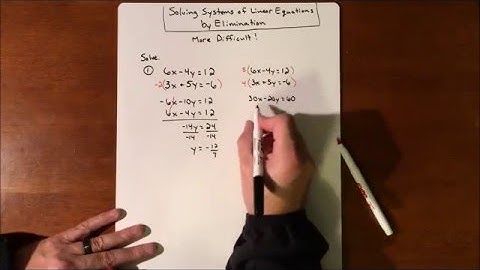 Solving Systems of Linear Equations
by Elimination
More Difficult!
Solve.
① 6x-4y=12
-2(3x+5y=-6)
-6x-10y=12
6x-4y=12
-14y=24
-14 -14
y=-12/7
5(6x-4y=12)
4(3x+5y=-6)
30x-20y=60